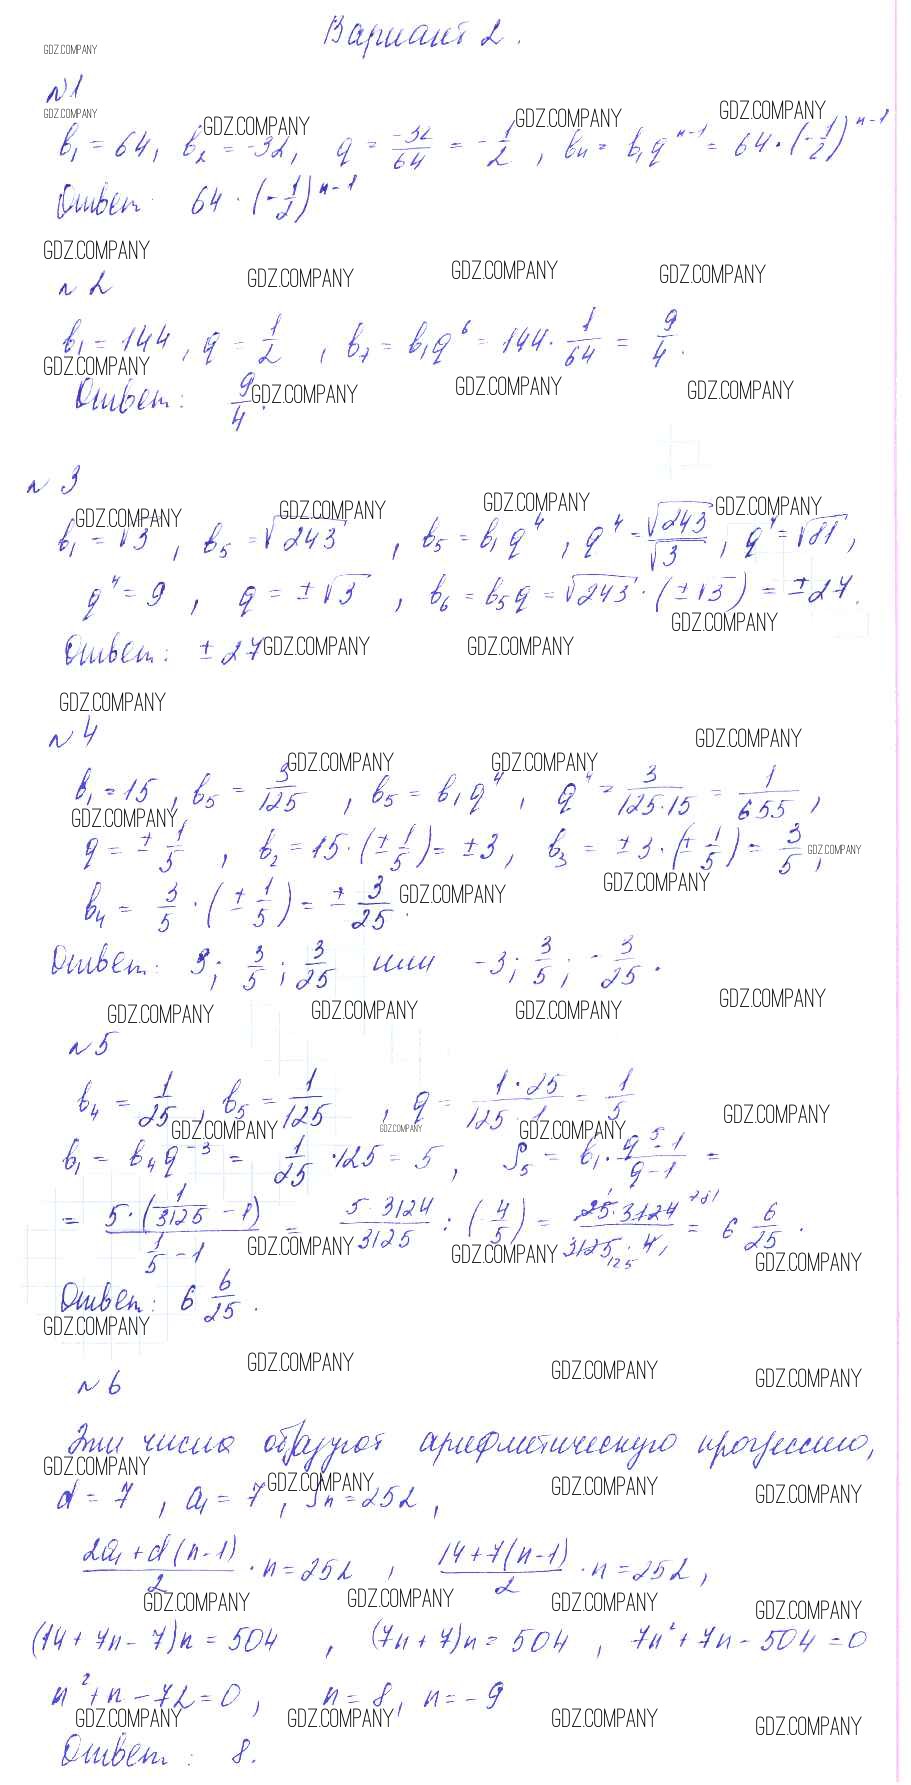 Вариант 2.
GDZ.COMPANY
№1
GDZ.COMPANY GDZ.COMPANY GDZ.COMPANY GDZ.COMPANY
b₁ = 64, b₂ = -32, q = -32/64 = -1/2, bn = b₁qⁿ⁻¹ = 64·(-1/2)ⁿ⁻¹
Ответ: 64·(-1/2)ⁿ⁻¹
GDZ.COMPANY GDZ.COMPANY GDZ.COMPANY GDZ.COMPANY
№2
b₁ = 144, q = 1/2, b₇ = b₁q⁶ = 144·1/64 = 9/4.
GDZ.COMPANY GDZ.COMPANY GDZ.COMPANY GDZ.COMPANY
Ответ: 9/4.
№3
GDZ.COMPANY GDZ.COMPANY GDZ.COMPANY GDZ.COMPANY
b₁ = √3, b₅ = √243, b₅ = b₁q⁴, q⁴ = √243/√3, q⁴ = √81,
q⁴ = 9, q = ±√3, b₆ = b₅q = √243·(±√3) = ±27.
GDZ.COMPANY
Ответ: ±27
GDZ.COMPANY GDZ.COMPANY
GDZ.COMPANY
№4
GDZ.COMPANY
GDZ.COMPANY GDZ.COMPANY
b₁ = 15, b₅ = 3/125, b₅ = b₁q⁴, q⁴ = 3/(125·15) = 1/655,
GDZ.COMPANY
q = ±1/5, b₂ = 15·(±1/5) = ±3, b₃ = ±3·(±1/5) = 3/5,
GDZ.COMPANY
GDZ.COMPANY GDZ.COMPANY
b₄ = 3/5·(±1/5) = ±3/25.
Ответ: 3; 3/5; 3/25 или -3; 3/5; -3/25.
GDZ.COMPANY GDZ.COMPANY GDZ.COMPANY GDZ.COMPANY
№5
b₄ = 1/25, b₅ = 1/125, q = (1·25)/(125·1) = 1/5
GDZ.COMPANY GDZ.COMPANY GDZ.COMPANY GDZ.COMPANY
b₁ = b₄q⁻³ = 1/25·125 = 5, S₅ = b₁·(q⁵-1)/(q-1) =
= 5·(1/3125 - 1)/(1/5 - 1) = 5·3124/3125 : (4/5) = 25·3124/(3125·4) = 6 6/25.
GDZ.COMPANY GDZ.COMPANY GDZ.COMPANY
Ответ: 6 6/25.
GDZ.COMPANY
GDZ.COMPANY GDZ.COMPANY GDZ.COMPANY
№6
Эти числа образуют арифметическую прогрессию,
GDZ.COMPANY GDZ.COMPANY GDZ.COMPANY GDZ.COMPANY
d = 7, a₁ = 7, Sn = 252,
(2a₁+d(n-1))/2·n = 252, (14+7(n-1))/2·n = 252,
GDZ.COMPANY GDZ.COMPANY GDZ.COMPANY GDZ.COMPANY
(14+7n-7)n = 504, (7n+7)n = 504, 7n²+7n-504 = 0
n²+n-72 = 0, n = 8, n = -9
GDZ.COMPANY GDZ.COMPANY GDZ.COMPANY GDZ.COMPANY
Ответ: 8.